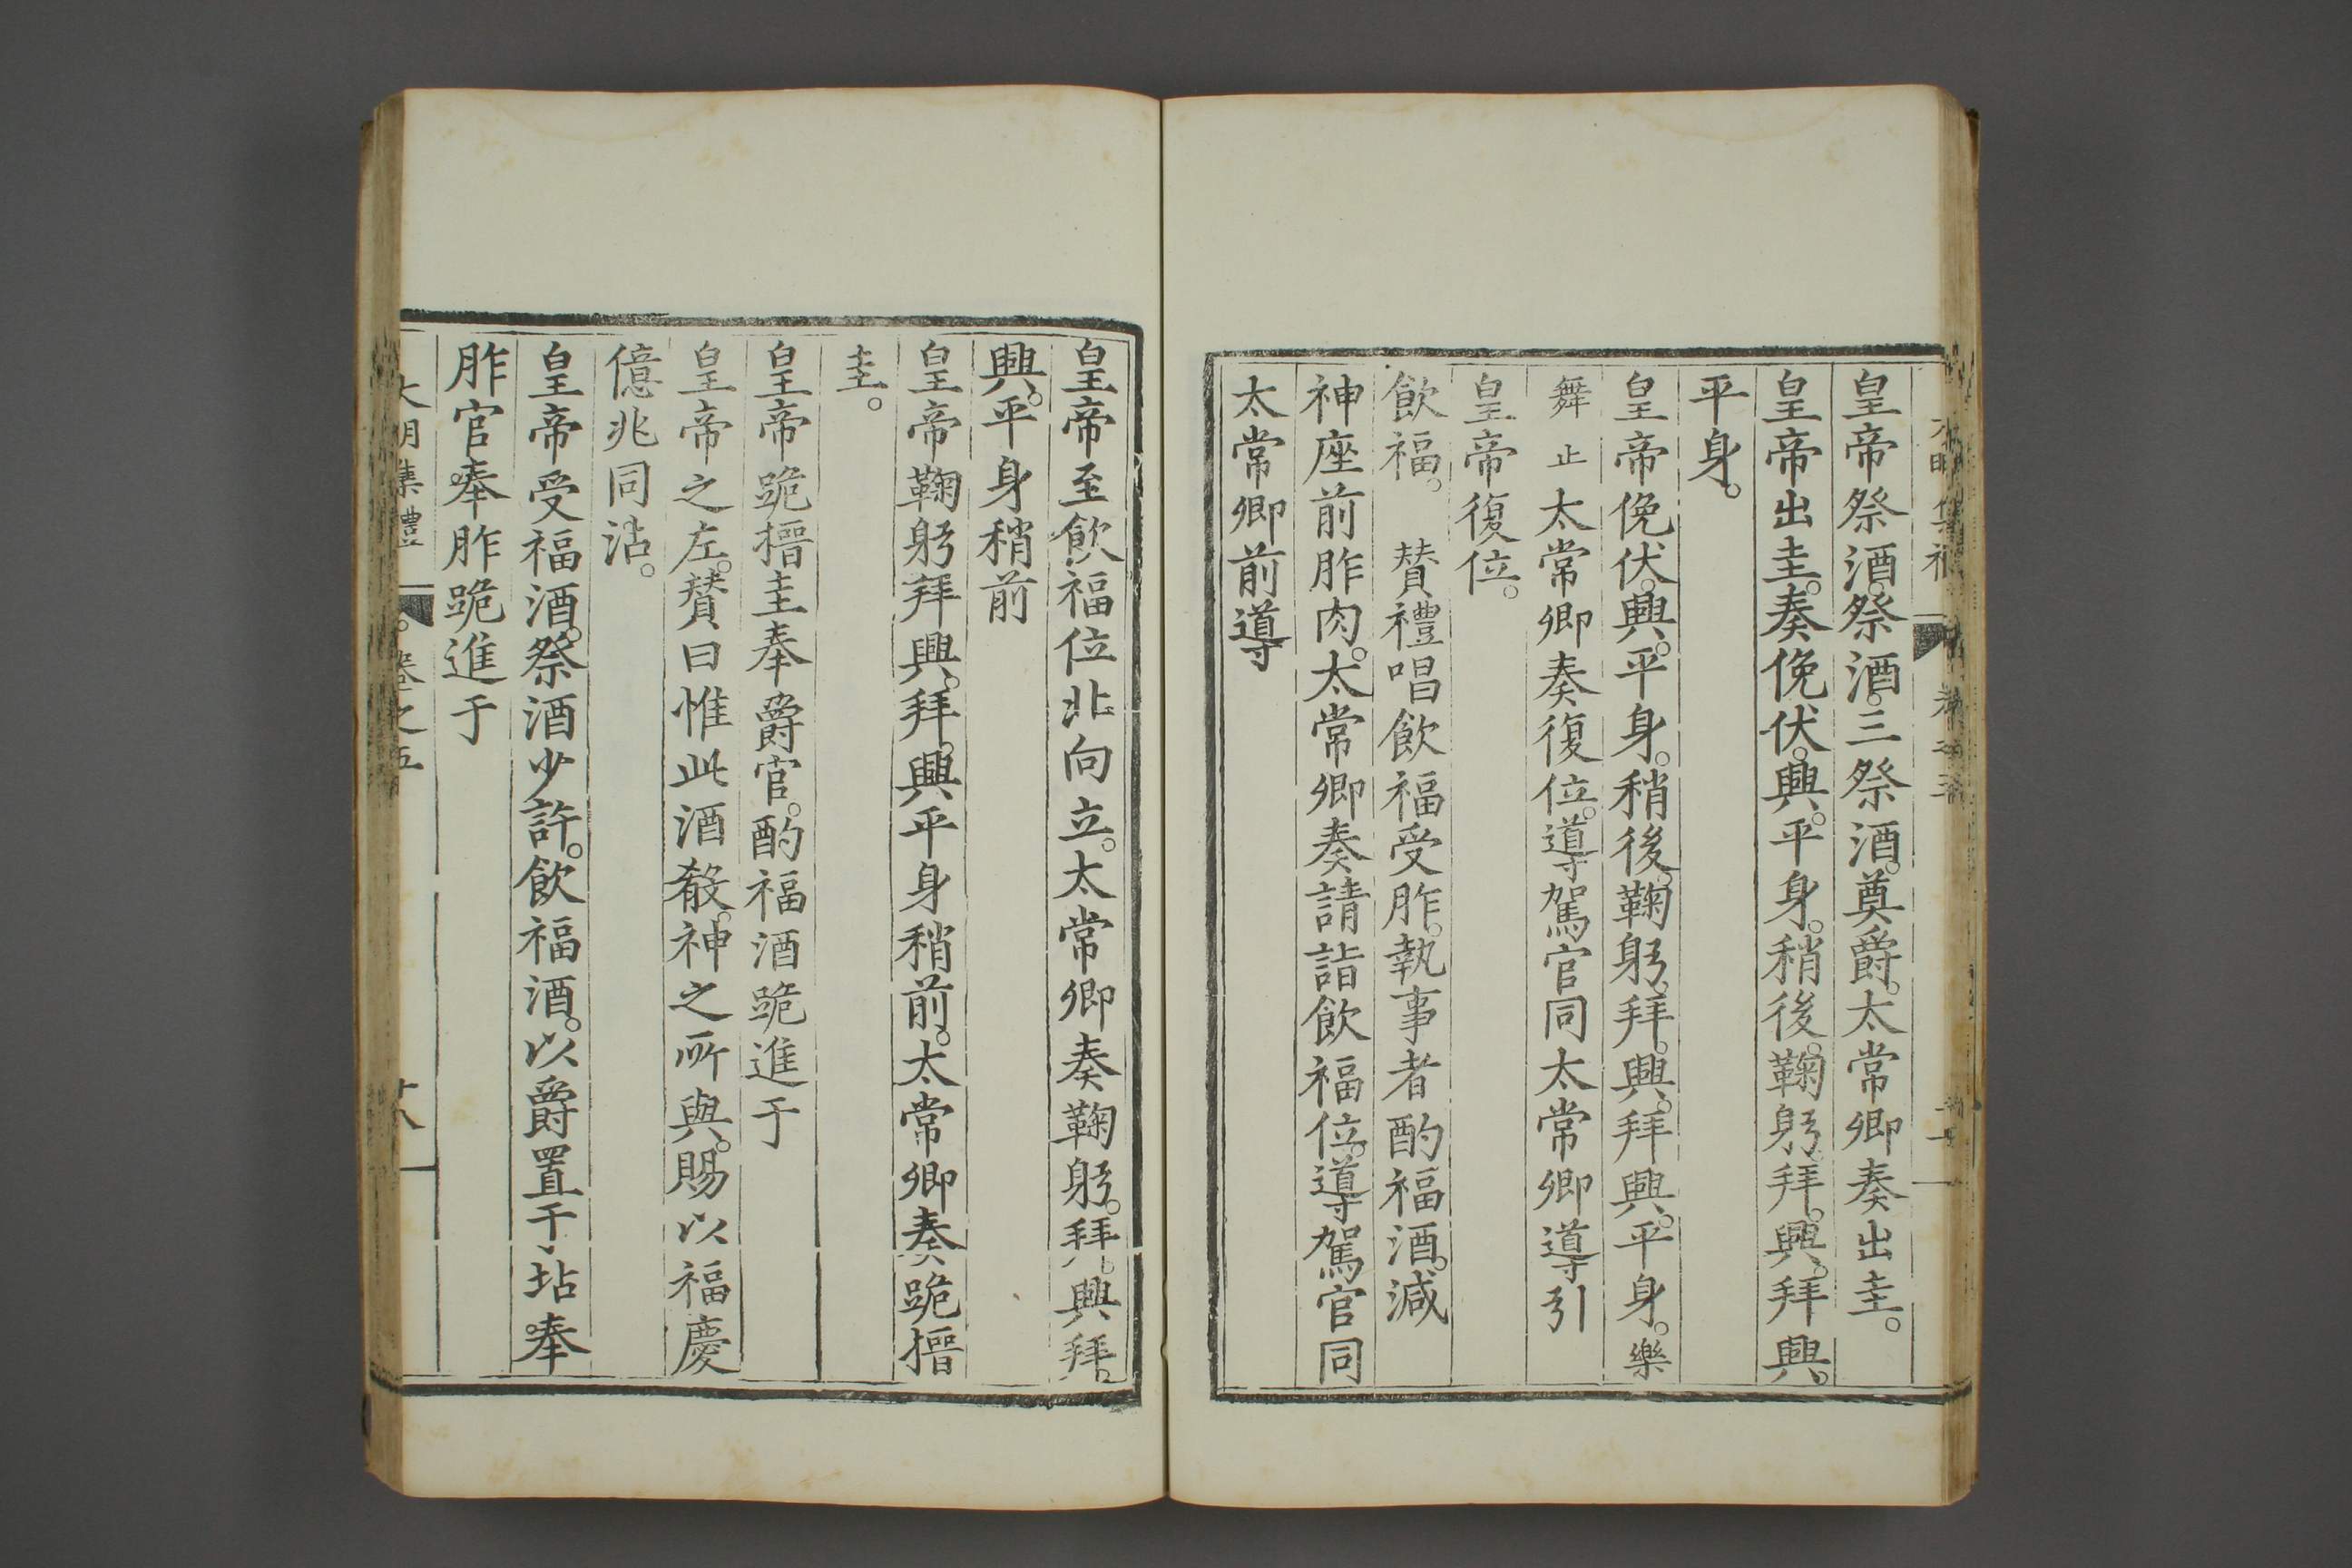 皇帝祭酒。祭酒。三祭酒。奠爵。太常卿奏出圭。
皇帝出圭。奏俛伏。興。平身。稍後。鞠躬。拜。興。拜。興。
平身。
皇帝俛伏。興。平身。稍後。鞠躬。拜。興。拜。興。平身。樂
舞止太常卿奏復位。導駕官同太常卿導引
皇帝復位。
飲福。 賛禮唱飲福受胙。執事者酌福酒。減
神座前胙肉。太常卿奏請詣飲福位。導駕官同
太常卿前導
皇帝至飲福位北向立。太常卿奏鞠躬。拜。興。拜。
興。平身稍前
皇帝鞠躬拜興。拜。興平身稍前。太常卿奏跪搢
圭。
皇帝跪搢圭奉爵官。酌福酒跪進于
皇帝之左。賛曰惟此酒殽。神之所與。賜以福慶
億兆同沾。
皇帝受福酒。祭酒少許。飲福酒。以爵置于坫奉
胙官奉胙跪進于
大明集禮 卷之五 廿八